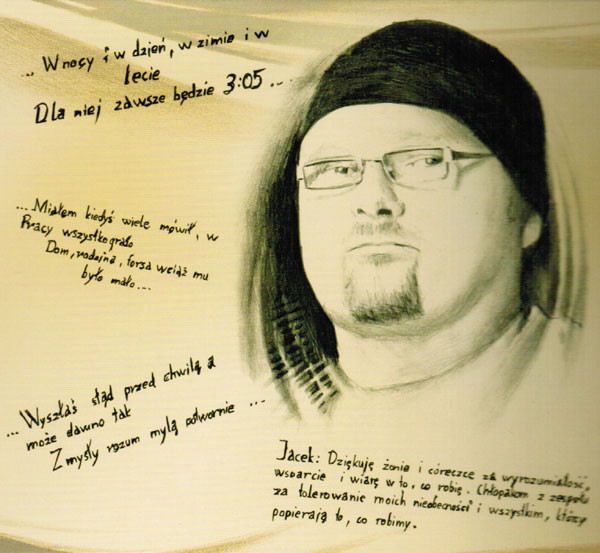 ... W nocy i w dzień, w zimie i w
lecie
Dla niej zawsze będzie 3:05 ...
... Miałem kiedyś wiele mówił, w
Pracy wszystko grało
Dom, rodzina, forsa wciąż mu
było mało...
... Wyszłaś stąd przed chwilą a
może dawno tak
Zmysły rozum mylą potwornie ...
Jacek: Dziękuję żonie i córeczce za wyrozumiałość,
wsparcie i wiarę w to, co robię. Chłopakom z zespołu
za tolerowanie moich nieobecności i wszystkim, którzy
popierają to, co robimy.